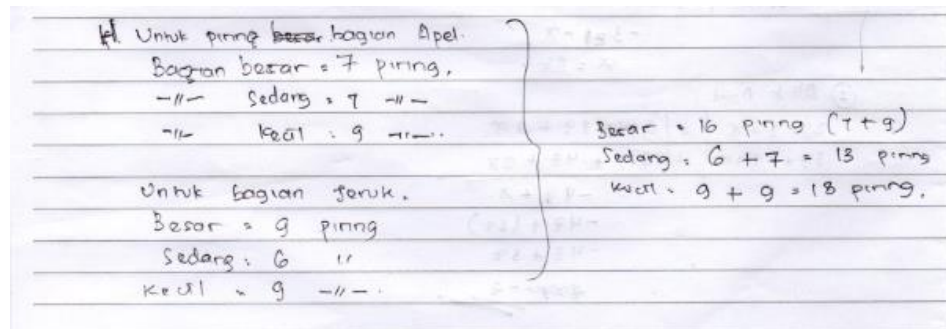 Untuk piring besar bagian Apel.
Bagian besar = 7 piring.
-11- Sedang = 7 -11-
-11- Kecil = 9 -11-.
Untuk bagian Jeruk.
Besar = 9 piring
Sedang = 6 "
Kecil = 9 -11-.
Besar = 16 piring (7+9)
Sedang = 6 + 7 = 13 piring
Kecil = 9 + 9 = 18 piring.